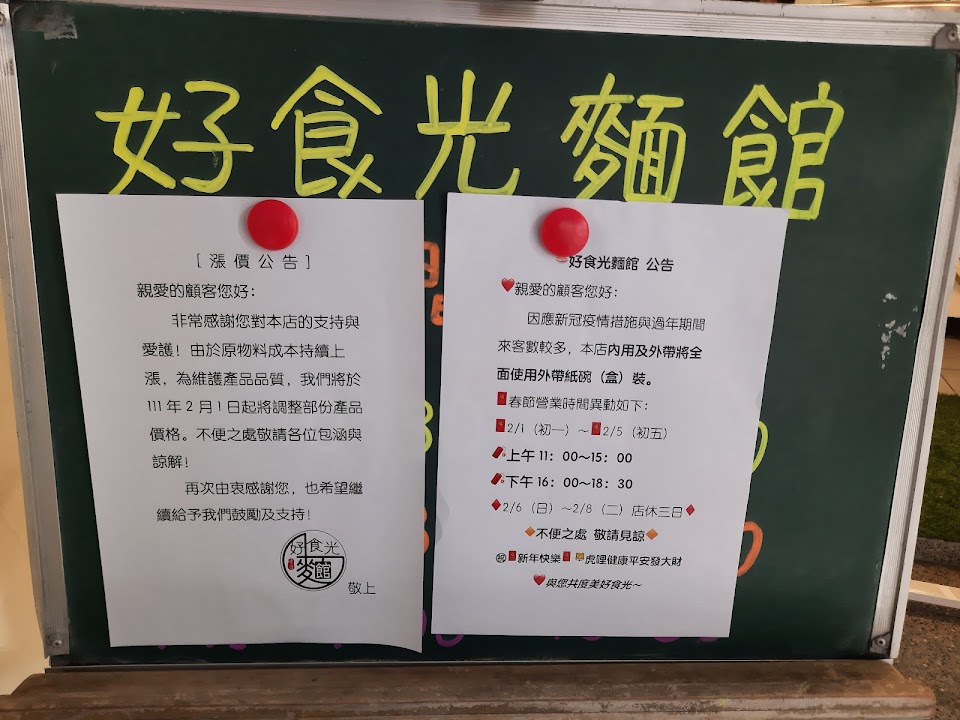 好食光麵館
[漲價公告]
親愛的顧客您好：
非常感謝您對本店的支持與
愛護！由於原物料成本持續上
漲，為維護產品品質，我們將於
111年2月1日起將調整部份產品
價格。不便之處敬請各位包涵與
諒解！
再次由衷感謝您，也希望繼
續給予我們鼓勵及支持！
好食光
麥館
敬上
好食光麵館 公告
親愛的顧客您好：
因應新冠疫情措施與過年期間
來客數較多，本店內用及外帶將全
面使用外帶紙碗（盒）裝。
春節營業時間異動如下：
2/1（初一）～2/5（初五）
上午11：00～15：00
下午16：00～18：30
2/6（日）～2/8（二）店休三日
不便之處 敬請見諒
㊗新年快樂 虎哩健康平安發大財
與您共度美好食光～